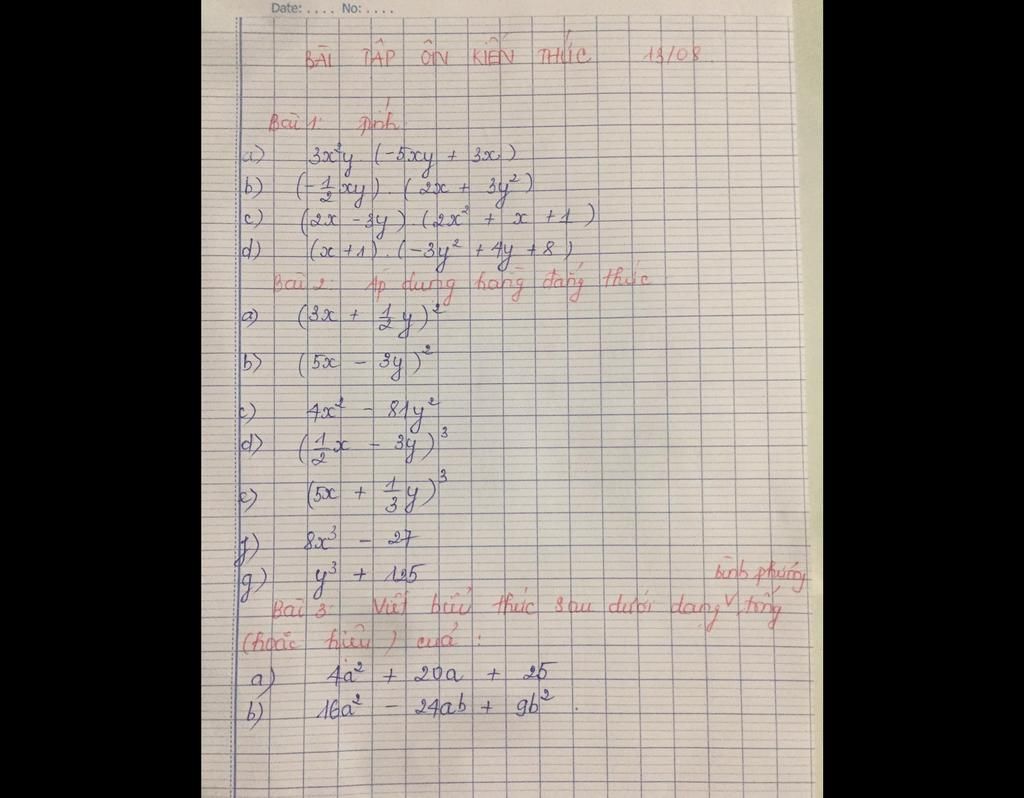 Date: .... No: ....
BÀI TẬP ÔN KIẾN THỨC 13/08
Bài 1: Tính
a) 3x²y (-5xy + 3x)
b) (-1/2xy) . (2x + 3y²)
c) (2x - 3y) . (2x² + x + 1)
d) (x + 1) . (-3y² + 4y + 8)
Bài 2: Áp dụng hằng đẳng thức
a) (3x + 1/2y)²
b) (5x - 3y)²
c) 4x² - 81y²
d) (1/2x - 3y)³
e) (5x + 1/3y)³
f) 8x³ - 27
g) y³ + 125
bình phương
Bài 3: Viết biểu thức sau dưới dạng ˅ tổng
(hoặc hiệu) của :
a) 4a² + 20a + 25
b) 16a² - 24ab + 9b² .